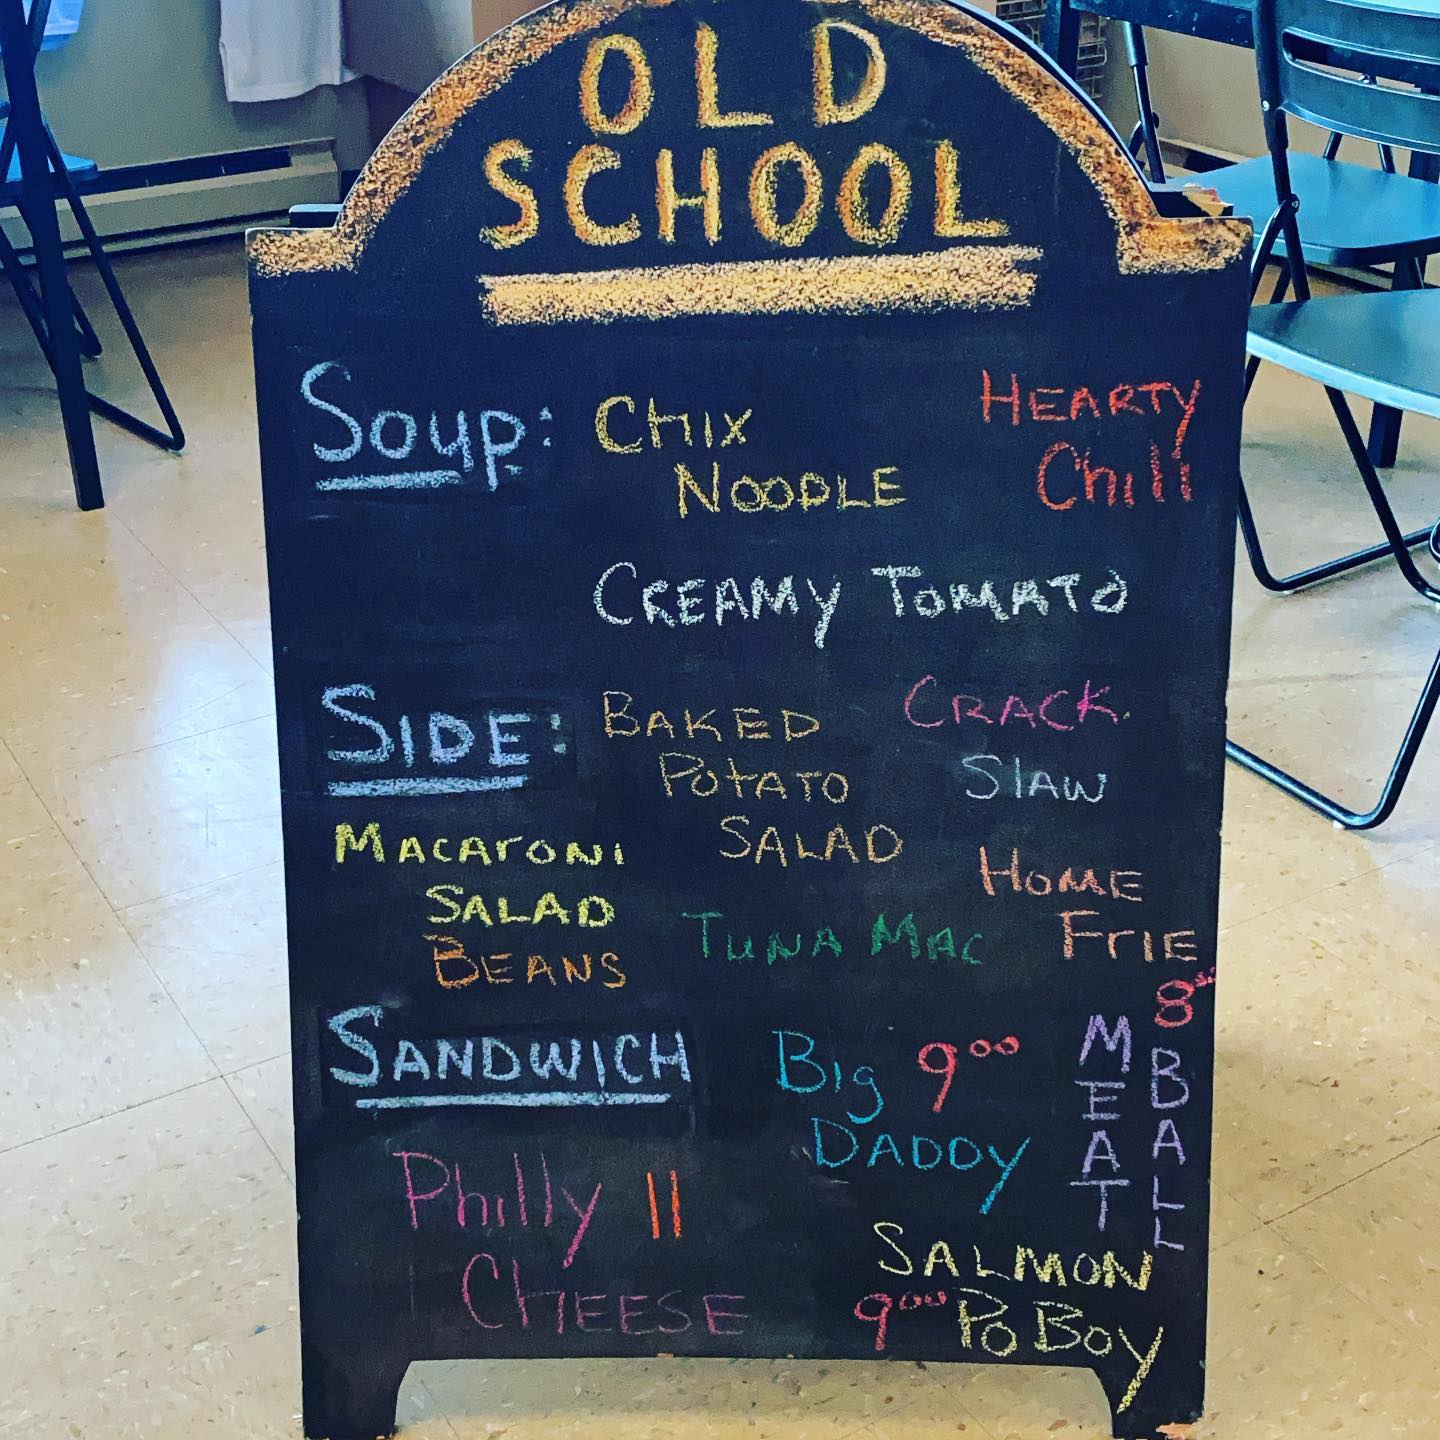 OLD
SCHOOL
Soup:
CHIX
NOODLE
HEARTY
Chili
CREAMY TOMATO
SIDE:
BAKED
POTATO
SALAD
CRACK
SLAW
MACARONI
SALAD
BEANS
TUNA MAC
HOME
FRIE
SANDWICH
Big 9.00
DADDY
MEAT
BALL
8.00
Philly 11
CHEESE
SALMON
9.00 PO BOY